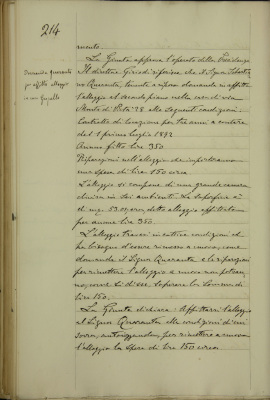 214
mento.
La Giunta approva l'operato della Presidenza
Domanda Quaranta
per affitto alloggio
Il direttore Girardi riferisce che il Signor
Quaranta, domanda in affitto
l'alloggio al secondo piano nella casa di via
Monte di Pietà 28 alle seguenti condizioni:
Contratto di locazione per tre anni a contare
dal 1 primo luglio 1892
Annuo fitto lire 350
Riparazioni nell'alloggio da importare una
spesa di lire 150 circa
L'alloggio si compone di una grande camera
divisa in sei ambienti. La superficie è
di mq. detto alloggio affittato
per annue lire 350.
L'alloggio trovasi in cattive condizioni ed
ha bisogna d'essere rimesso a nuovo, come
domanda il Signor Quaranta e le riparazioni
per rimettere l'alloggio a nuovo non potran-
no, come si disse, superare la somma di
lire 150.
La Giunta dichiara: Affittarsi l'alloggio
al Signor Quaranta alle condizioni di cui
sovra, autorizzandosi per rimettere a nuovo
l'alloggio la spesa di lire 150 circa.